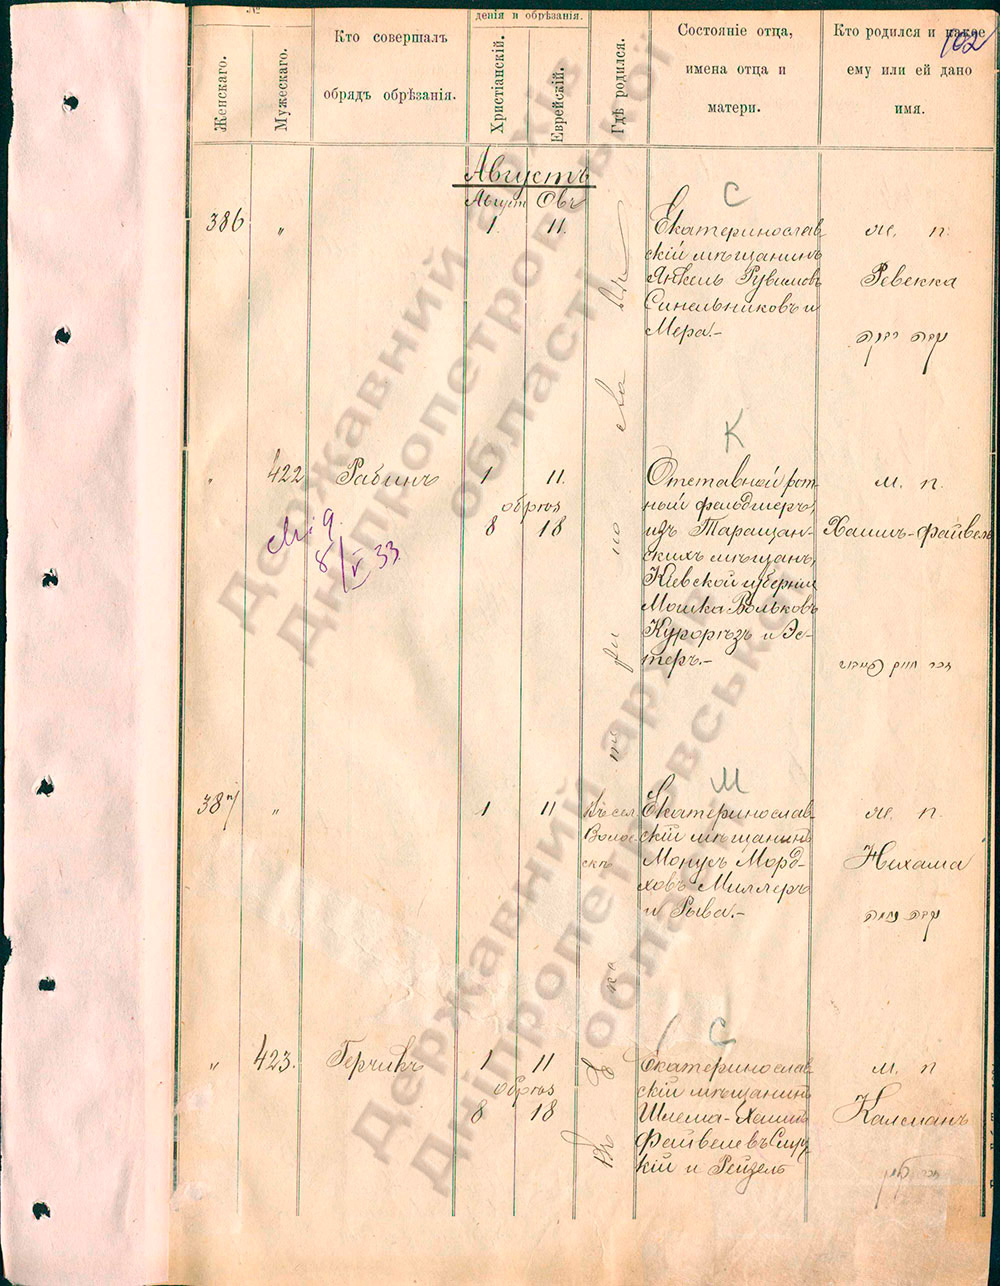 №
102
Женскаго.
Мужескаго.
Кто совершалъ
обрядъ обрѣзанія.
денія и обрѣзанія.
Христіанскій.
Еврейскій.
Гдѣ родился.
Состояніе отца,
имена отца и
матери.
Кто родился и какое
ему или ей дано
имя.
Августъ
Август Овъ
386 „ 1 11.
С
Екатеринослав
скій мѣщанинъ
Янкель Рувимовъ
Синельниковъ и
Мера.-
ж. п.
Ревекка
422 Рабинъ 1 11.
обрѣз
8 18
8/V 33
К
Отставной рот-
ный фельдшеръ,
изъ Таращан-
скихъ мѣщанъ,
Кіевской губерніи
Мошка Вольковъ
и Эс-
теръ.-
м. п.
Хаимъ-Файвель
387 „ 1 11
Въ сел.
Волос-
скѣ
М
Екатеринослав-
скій мѣщанинъ
Монусъ Морд-
ховъ Миллеръ
и Рыва.-
ж. п.
Нехама
„ 423. Герчикъ 1 11
обрѣз
8 18
С
Екатеринослав
скій мѣщанинъ
Шлема-Хаимъ
Файвелевъ Слуц-
кій и Рейзель
м. п
Калманъ
Державний архів
Дніпропетровської
області
Державний архів
Дніпропетровської
області